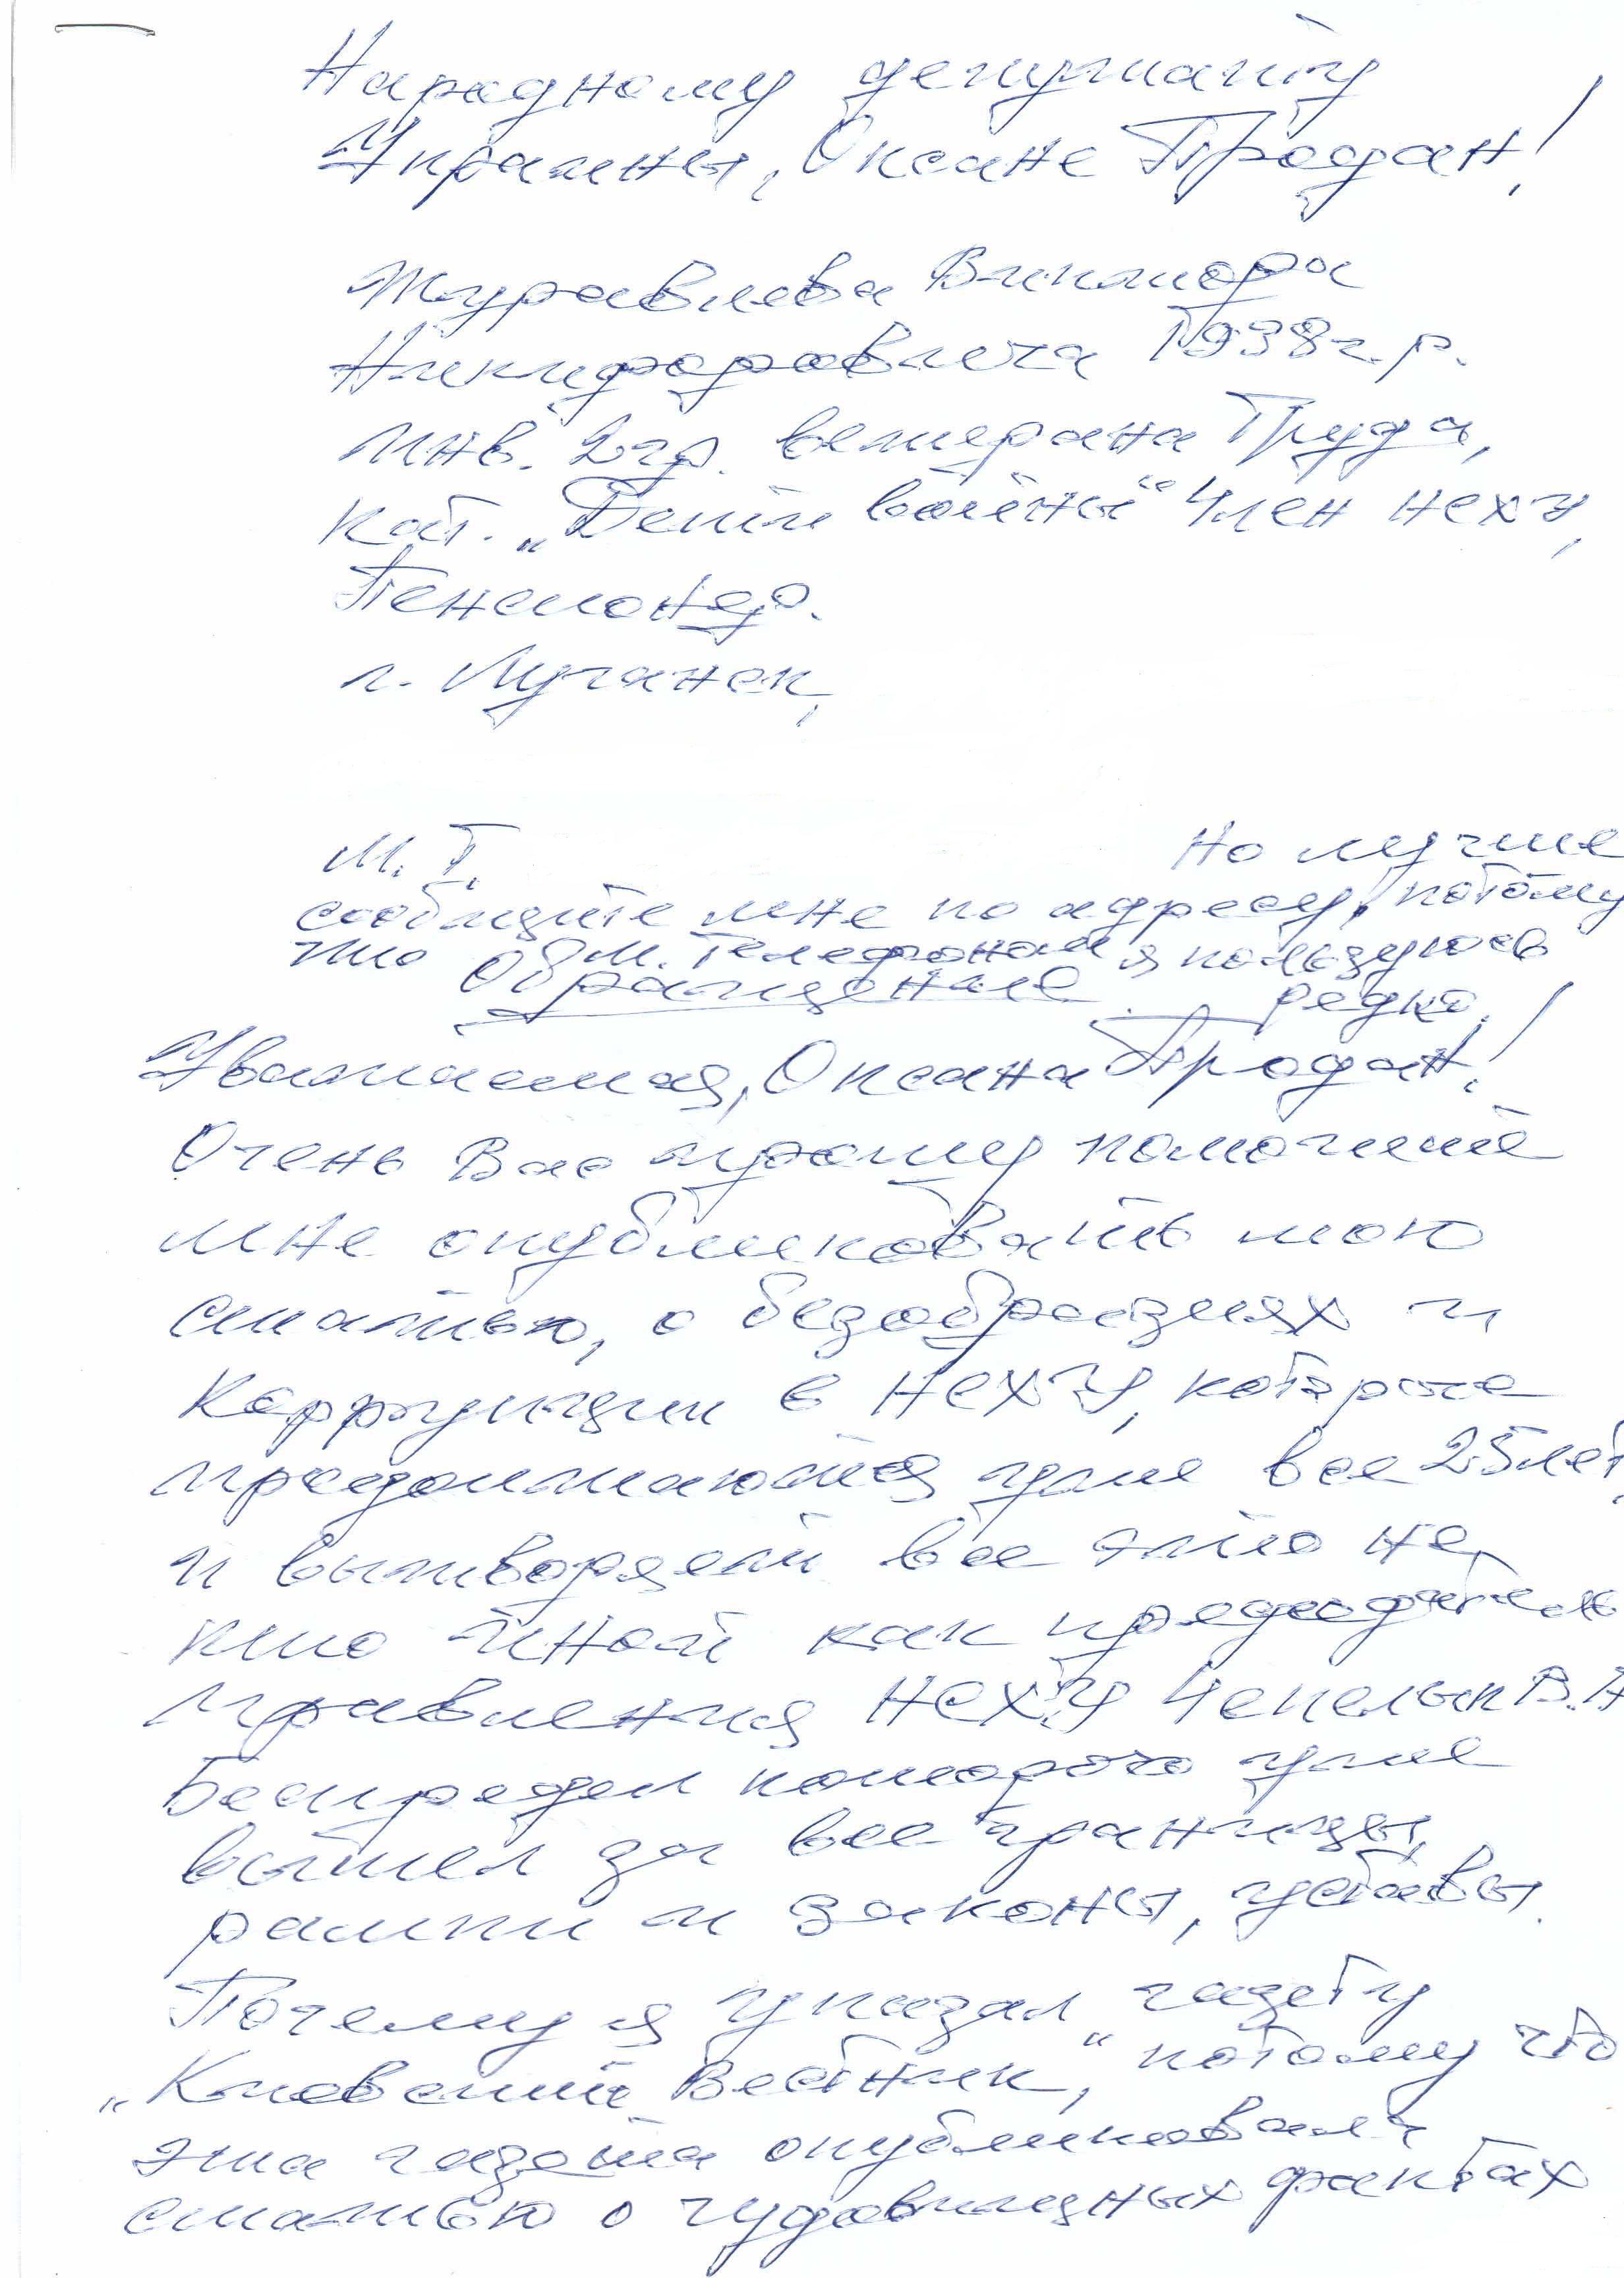 Народному депутату
Украины, Оксане Продан!
Журавлева Виктора
Никифоровича 1938 г.р.
инв. 2 гр. ветерана Труда,
кат. „Дети войны" Член НСХУ,
Пенсионер.
г. Луганск,
М. Т. Но лучше
сообщите мне по адресу, потому
что М. Телефоном я пользуюсь
редко.
Обращение
Уважаемая, Оксана Продан!
Очень Вас прошу помогите
мне опубликовать мою
статью, о безобразиях и
Коррупции в НСХУ, которые
продолжаются уже все 25 лет,
и вытворяет все это не
кто иной как председатель
правления НСХУ Чепелык В.А
Беспредел которого уже
вышел за все границы,
рамки и законы, уставы.
Почему я указал газету
„Киевский Вестник," потому что
эта газета опубликовала
статью о чудовищных фактах